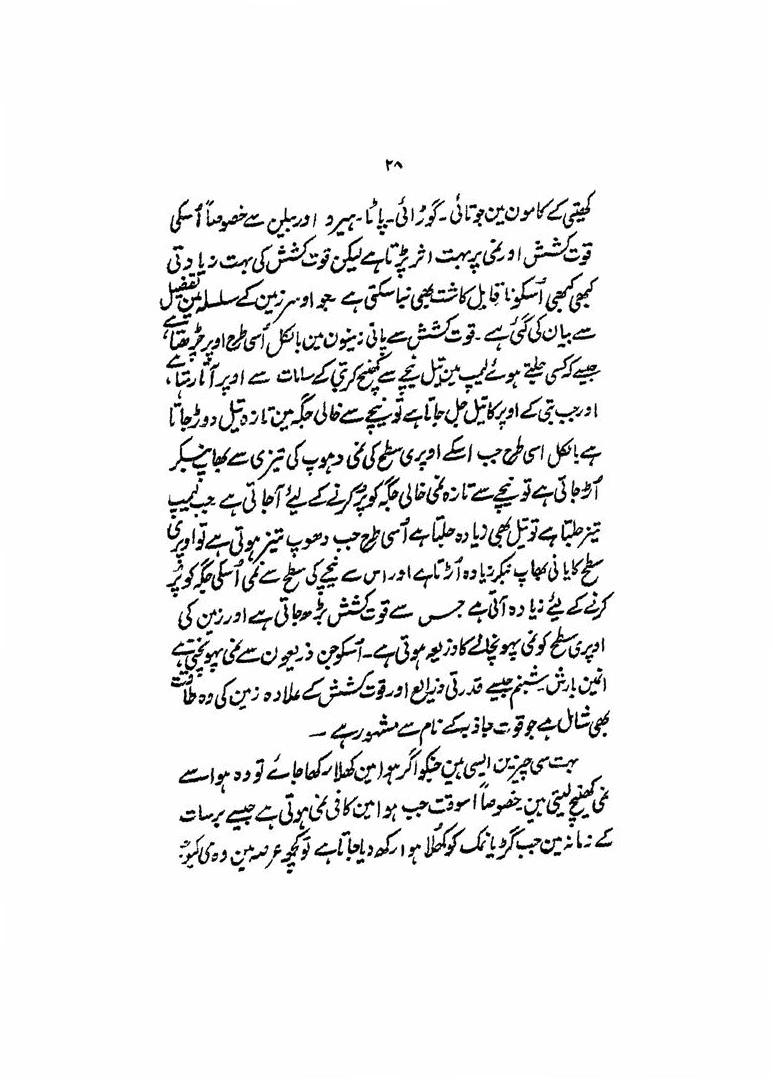 ۲۸
کھیتی کے کامون مین جوتائی۔ گوڑائی۔ پاٹا۔ ہیرو اور بیلن سے خصوصاً اُسکی
قوت کشش اور نمی پر بہت اثر پڑتا ہے لیکن قوت کشش کی بہت زیادتی
کبھی کبھی اُسکو نا قابل کاشت بھی بنا سکتی ہے جو اوسر زمین کے سلسلہ مین تفصیل
سے بیان کی گئی ہے۔ قوت کشش سے پانی زمینون مین بالکل اُسی طرح اوپر چڑھتا ہے
جیسے کہ کسی جلتے ہوئے لیمپ مین تیل نیچے سے کھنچ کر بتی کے سامات سے اوپر آتا رہتا ہے،
اور جب بتی کے اوپر کا تیل جل جاتا ہے تو نیچے سے خالی جگہ مین تازہ تیل دوڑ جاتا
ہے بالکل اسی طرح جب اسکے اوپری سطح کی نمی دہوپ کی تیزی سے بھاپ بنکر
اُڑ جاتی ہے تو نیچے سے تازہ نمی خالی جگہ کو پُر کرنے کے لیے آجاتی ہے جب لیمپ
تیز جلتا ہے تو تیل بھی زیادہ جلتا ہے اُسی طرح جب دھوپ تیز ہوتی ہے تو اوپری
سطح کا پانی بھاپ بنکر زیادہ اُڑتا ہے اور اس سے نیچے کی سطح سے نمی اُسکی جگہ کو پُر
کرنے کے لیے زیادہ آتی ہے جس سے قوت کشش بڑھ جاتی ہے اور زمین کی
اوپری سطح کو نمی پہونچانے کا ذریعہ ہوتی ہے۔ اُسکو جن ذریعون سے نمی پہونچتی ہے
انمین بارش شبنم جیسے قدرتی ذرایع اور قوت کشش کے علاوہ زمین کی وہ طاقت
بھی شامل ہے جو قوت جاذبہ کے نام سے مشہور ہے۔
بہت سی چیزین ایسی ہین جنکو اگر ہوا مین کھلا رکھا جائے تو وہ ہوا سے
نمی کھینچ لیتی ہین خصوصاً اسوقت جب ہوا مین کافی نمی ہوتی ہے جیسے برسات
کے زمانہ مین جب گڑ یا نمک کو کھلا ہوا رکھ دیا جاتا ہے تو کچھ عرصہ مین وہ نمی کیوجہ